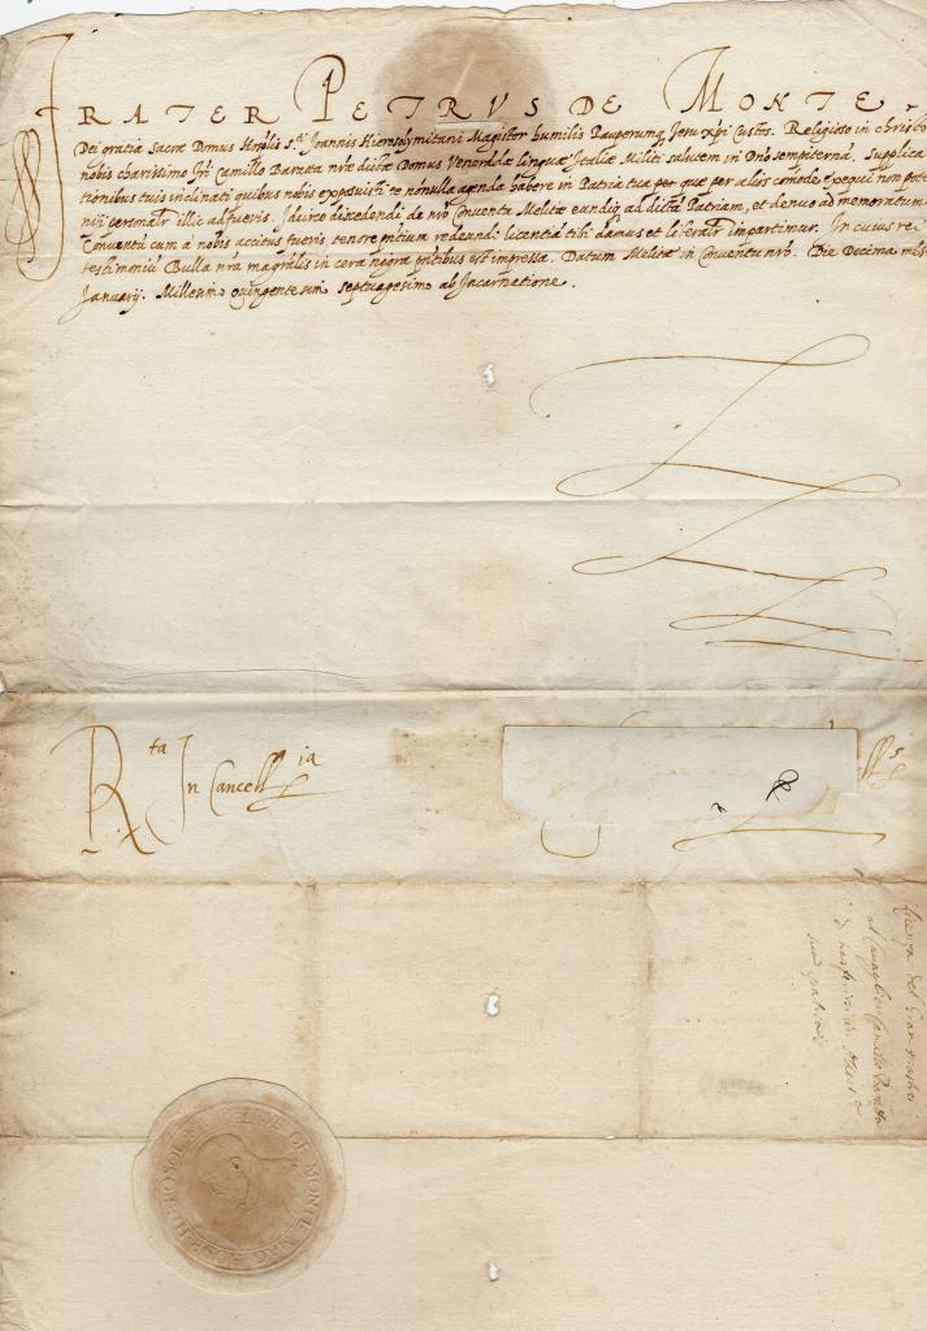 FRATER PETRVS DE MONTE.
Dei gratia Sacræ Domus Hosp̃lis s.ti Joannis Hierosolymitani Magister humilis Pauperumq̃ Jesu xp̃i Custos. Religioso in christo
nobis charissimo frĩ Camillo Barata nrẽ dictæ Domus Veneridæ linguæ Italiæ Militi salutem in Dnõ sempiternã. Supplica
tionibus tuis inclinati quibus nobis exposuisti te nõnulla agenda habere in Patria tua per quæ per alios cõmode exequi non pote
nisi personalr̃ illic adfueris. Idcirco discedendi de nrõ Conventu Melitæ eundiq̃ ad dictã Patriam, et denuo ad memoratum
Conventũ cum a nobis accitus fueris tenore pñtium redeundi licentiã tibi damus et liberalr̃ impartimur. In cuius rei
testimoniũ Bulla nrã magrãlis in cera nigra pñtibus est impressa. Datum Melitæ in Conventu nrõ. Die Decima mẽs
Januarij. Millesimo quingentesimo septuagesimo ab Incarnatione.
R.ta In Cancell.ia
del Gran
DE MONTE